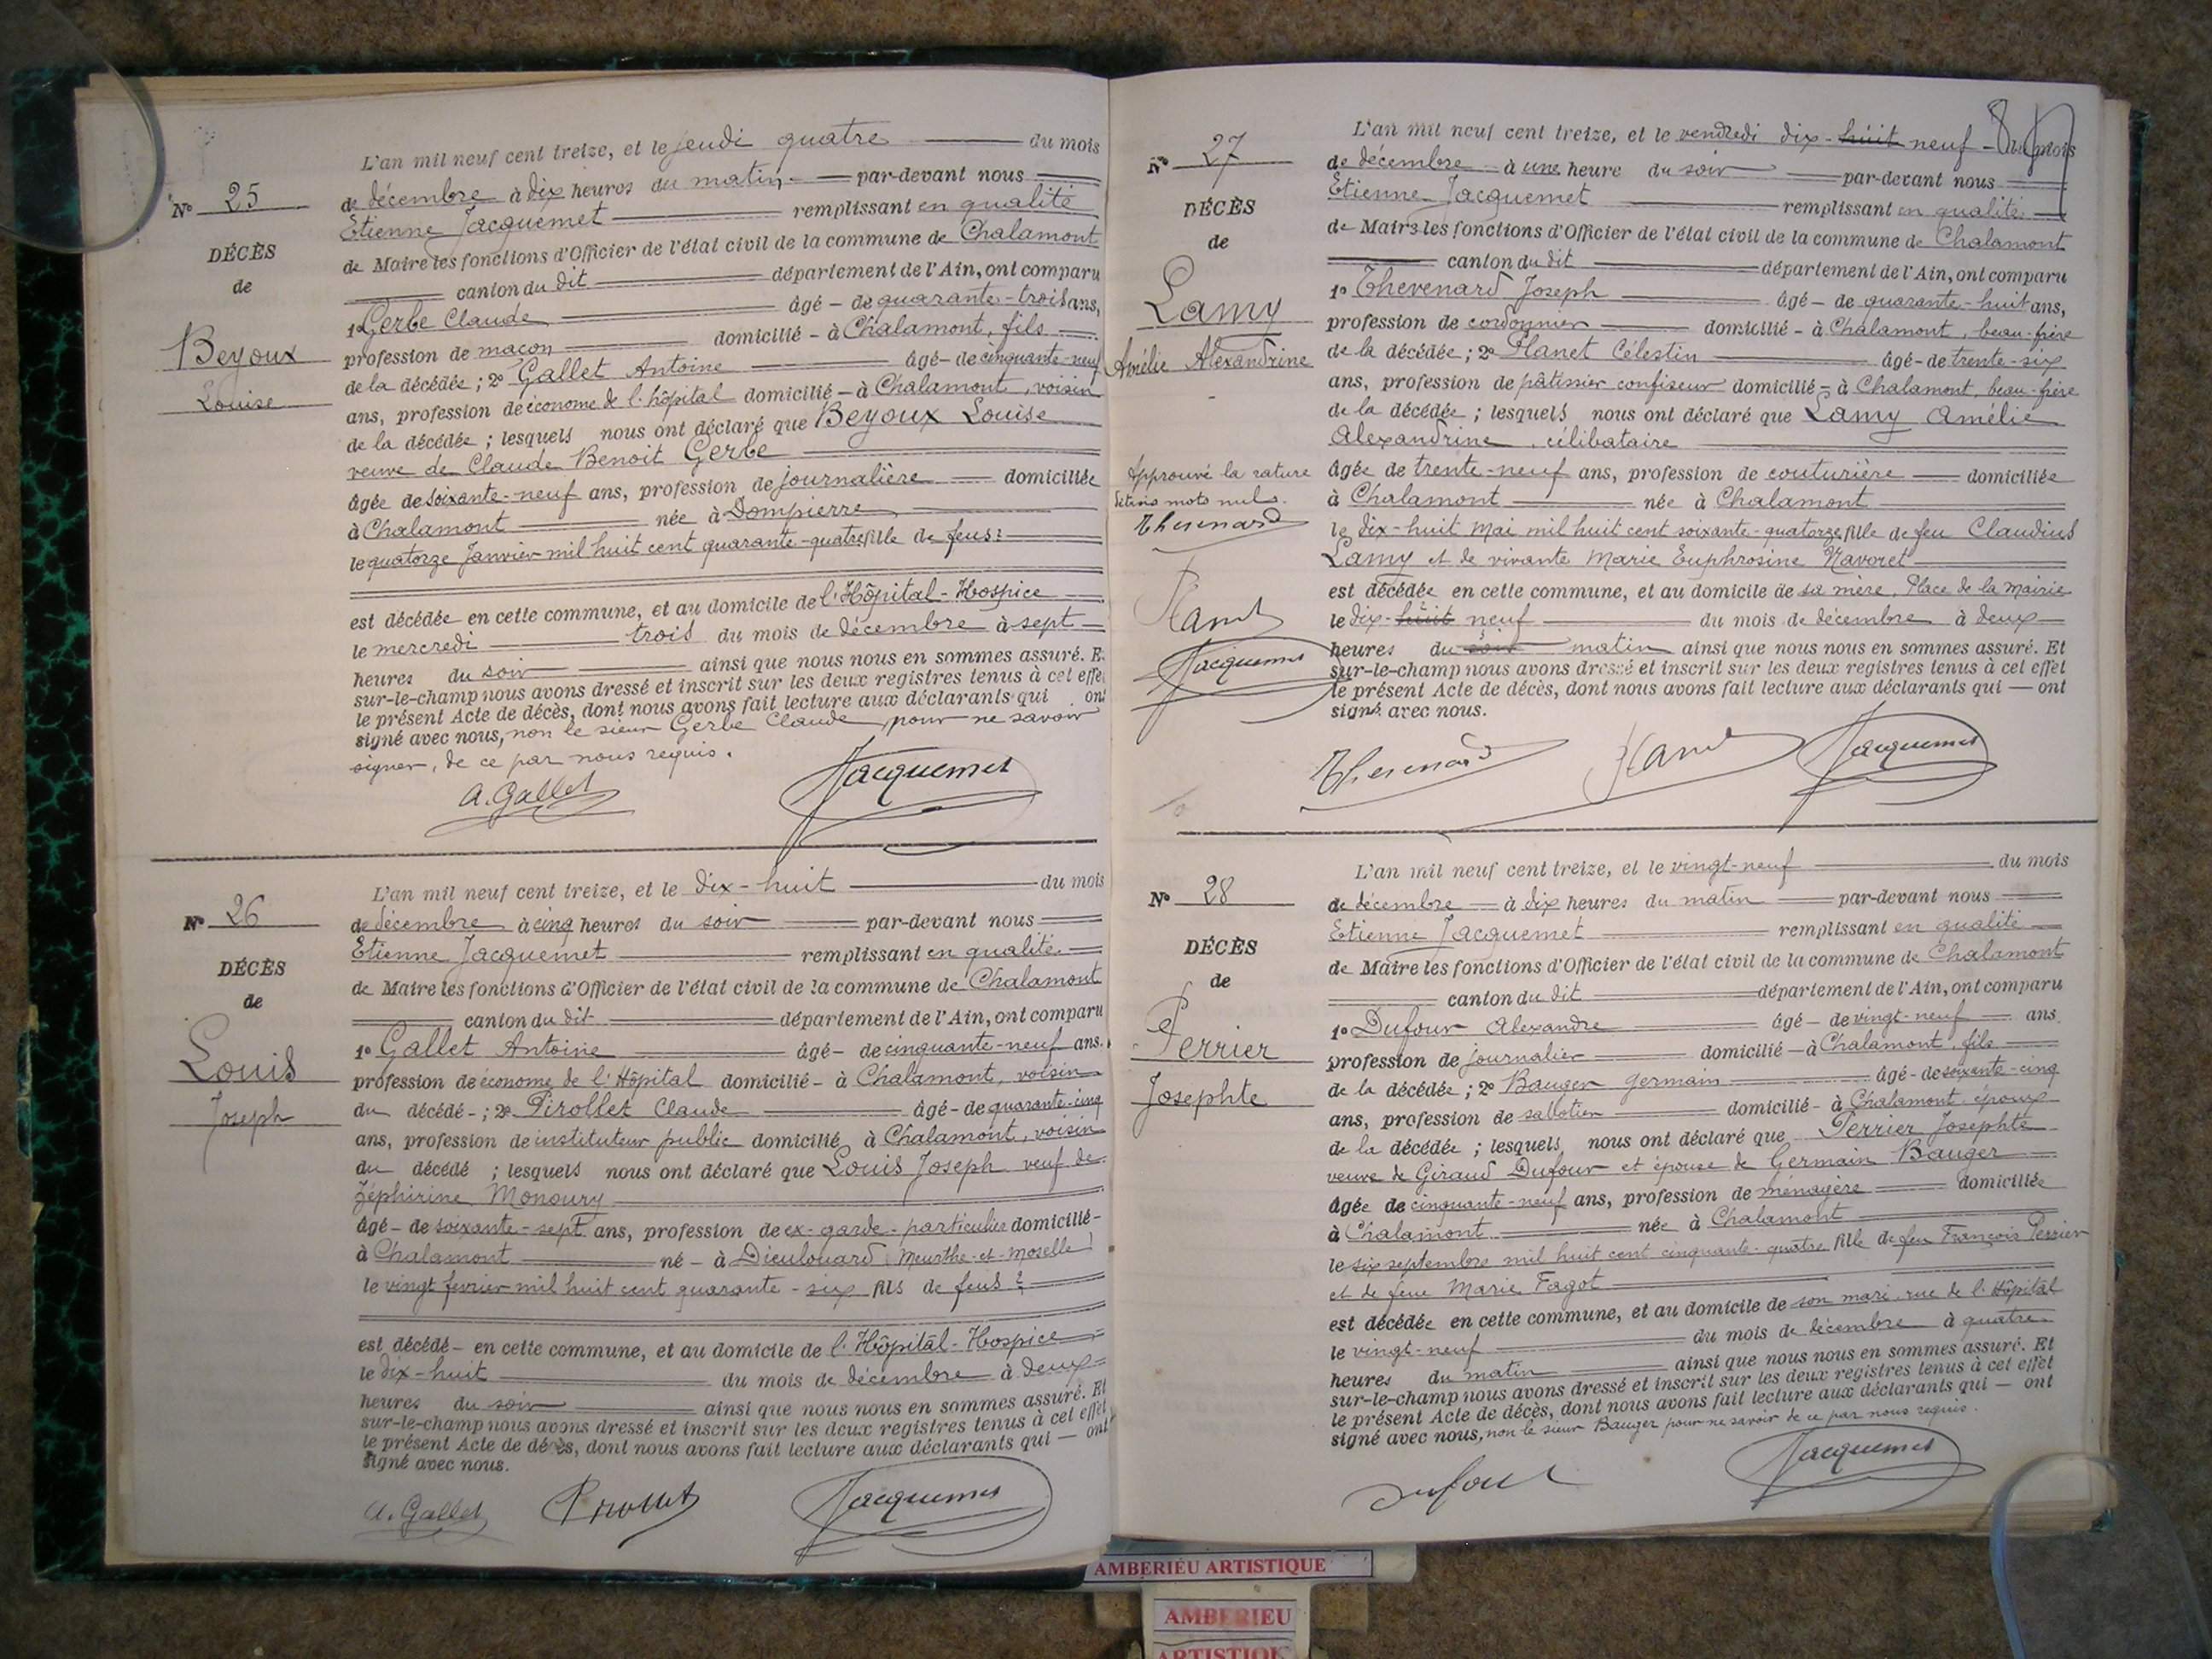 L'an mil neuf cent treize, et le jeudi quatre du mois
N° 25
de décembre à dix heures du matin par-devant nous
Etienne Jacquemet remplissant en qualité
DÉCÈS
de Maire les fonctions d'Officier de l'état civil de la commune de Chalamont
de
canton du dit département de l'Ain, ont comparu
1° Gerbe Claude âgé - de quarante-trois ans,
Beyoux
profession de maçon domicilié - à Chalamont, fils
de la décédée ; 2° Gallet Antoine âgé - de cinquante-neuf
Louise
ans, profession de économe de l'hôpital domicilié - à Chalamont, voisin
de la décédée ; lesquels nous ont déclaré que Beyoux Louise
veuve de Claude Benoit Gerbe
âgée de soixante-neuf ans, profession de journalière domiciliée
à Chalamont née à Dompierre
le quatorze Janvier mil huit cent quarante-quatre fille de feus ?
est décédée en cette commune, et au domicile de l'Hôpital-Hospice
le mercredi trois du mois de décembre à sept
heures du soir ainsi que nous nous en sommes assuré. E
sur-le-champ nous avons dressé et inscrit sur les deux registres tenus à cet effe
le présent Acte de décès, dont nous avons fait lecture aux déclarants qui ont
signé avec nous, non le sieur Gerbe Claude pour ne savoir
signer, de ce par nous requis.
A. Gallet Jacquemet
L'an mil neuf cent treize, et le dix-huit du mois
N° 26
de décembre à cinq heures du soir par-devant nous
Etienne Jacquemet remplissant en qualité
DÉCÈS
de Maire les fonctions d'Officier de l'état civil de la commune de Chalamont
de
canton du dit département de l'Ain, ont comparu
1° Gallet Antoine âgé - de cinquante-neuf ans.
Louis
profession de économe de l'Hôpital domicilié - à Chalamont, voisin
du décédé - ; 2° Pirollet Claude âgé - de quarante-cinq
Joseph
ans, profession de instituteur public domicilié à Chalamont, voisin
du décédé ; lesquels nous ont déclaré que Louis Joseph veuf de
Zéphirine Monoury
âgé - de soixante-sept ans, profession de ex-garde-particulier domicilié -
à Chalamont né - à Dieulouard (Meurthe-et-Moselle)
le vingt fevrier mil huit cent quarante-six fils de feus ?
est décédé - en cette commune, et au domicile de l'Hôpital-Hospice
le dix-huit du mois de décembre à deux
heures du soir ainsi que nous nous en sommes assuré. Et
sur-le-champ nous avons dressé et inscrit sur les deux registres tenus à cet effet
le présent Acte de décès, dont nous avons fait lecture aux déclarants qui — ont
signé avec nous.
A. Gallet Pirollet Jacquemet
L'an mil neuf cent treize, et le vendredi dix-huit neuf - du mois
N° 27
de décembre à une heure du soir par-devant nous
Etienne Jacquemet remplissant en qualité
DÉCÈS
de Maire les fonctions d'Officier de l'état civil de la commune de Chalamont
de
canton du dit département de l'Ain, ont comparu
Lamy
1° Thevenard Joseph âgé - de quarante-huit ans,
profession de cordonnier domicilié - à Chalamont, beau-frère
Amélie Alexandrine
de la décédée ; 2° Planet Célestin âgé - de trente-six
ans, profession de pâtissier confiseur domicilié - à Chalamont, beau-frère
de la décédée ; lesquels nous ont déclaré que Lamy Amélie
Alexandrine, célibataire
Approuvé la rature
âgée de trente-neuf ans, profession de couturière domiciliée
mots nuls.
à Chalamont née à Chalamont
Thevenard
le dix-huit Mai mil huit cent soixante-quatorze fille de feu Claudius
Lamy et de vivante Marie Euphrosine Navoret
est décédée en cette commune, et au domicile de sa mère, Place de la Mairie
Planet
le dix-huit neuf du mois de décembre à deux
Jacquemet
heures du soir matin ainsi que nous nous en sommes assuré. Et
sur-le-champ nous avons dressé et inscrit sur les deux registres tenus à cet effet
le présent Acte de décès, dont nous avons fait lecture aux déclarants qui — ont
signé avec nous.
Thevenard Planet Jacquemet
L'an mil neuf cent treize, et le vingt-neuf du mois
N° 28
de décembre à dix heures du matin par-devant nous
Etienne Jacquemet remplissant en qualité
DÉCÈS
de Maire les fonctions d'Officier de l'état civil de la commune de Chalamont
de
canton du dit département de l'Ain, ont comparu
Perrier
1° Dufour Alexandre âgé - de vingt-neuf ans
profession de journalier domicilié - à Chalamont, fils
Josephte
de la décédée ; 2° Bauger Germain âgé - de soixante-cinq
ans, profession de sabotier domicilié - à Chalamont, époux
de la décédée ; lesquels nous ont déclaré que Perrier Josephte
veuve de Giraud Dufour et épouse de Germain Bauger
âgée de cinquante-neuf ans, profession de ménagère domiciliée
à Chalamont née à Chalamont
le six septembre mil huit cent cinquante-quatre fille de feu François Perrier
et de feue Marie Fagot
est décédée en cette commune, et au domicile de son mari, rue de l'Hôpital
le vingt-neuf du mois de décembre à quatre
heures du matin ainsi que nous nous en sommes assuré. Et
sur-le-champ nous avons dressé et inscrit sur les deux registres tenus à cet effet
le présent Acte de décès, dont nous avons fait lecture aux déclarants qui — ont
signé avec nous, non le sieur Bauger pour ne savoir de ce par nous requis.
Dufour Jacquemet
AMBERIEU ARTISTIQUE
AMBERIEU
ARTISTIQUE